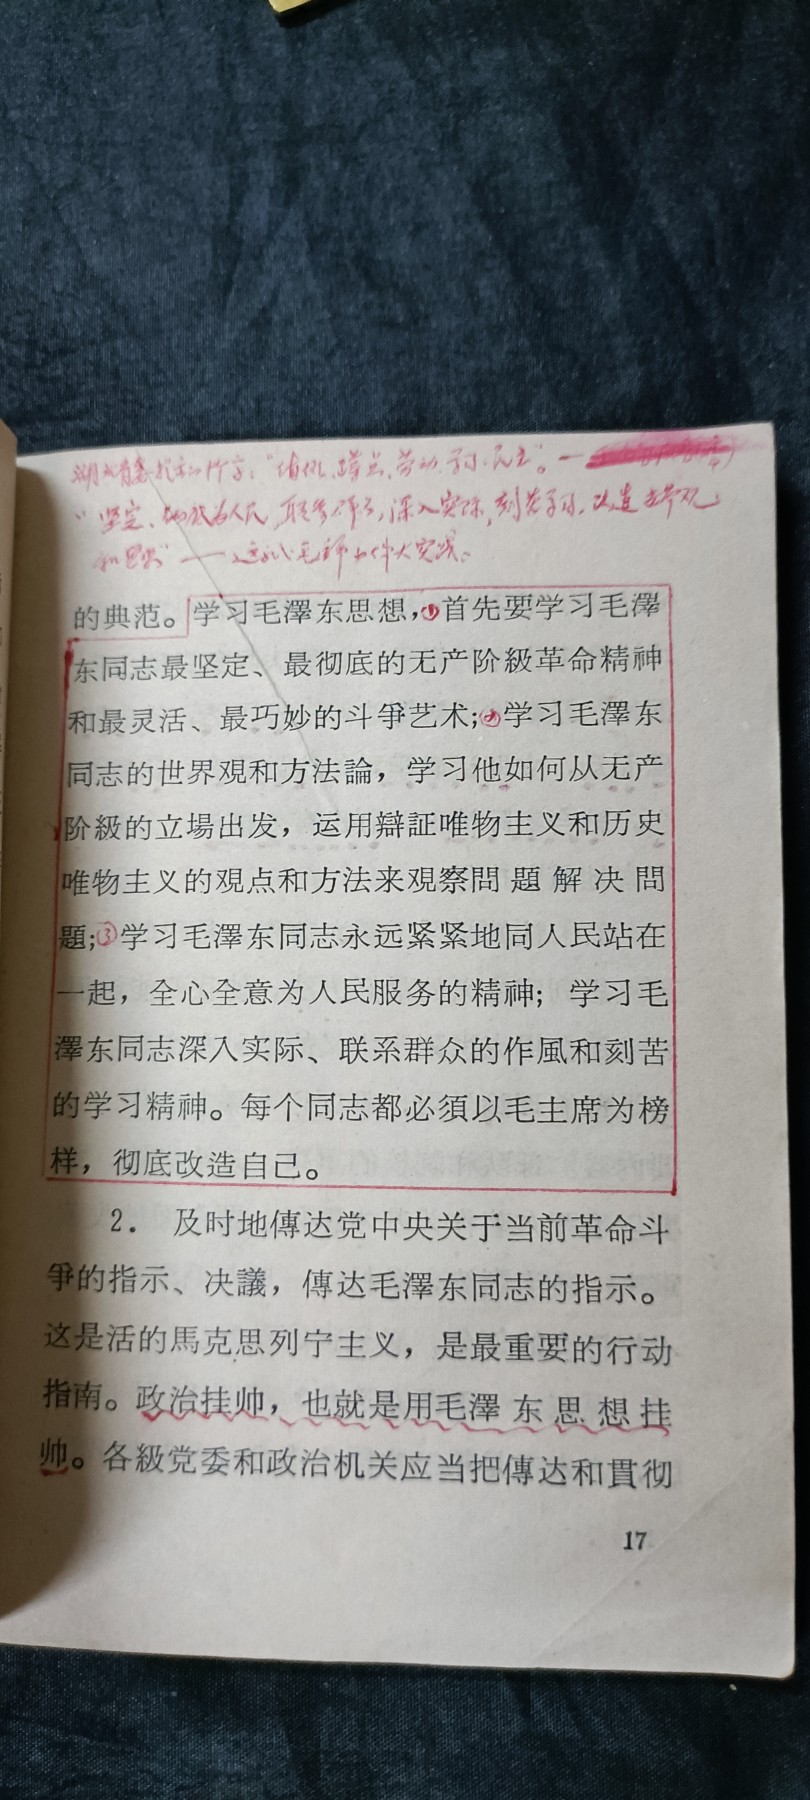 "坚定、
和思想"——
的典范。学习毛澤东思想,①首先要学习毛澤
东同志最坚定、最彻底的无产阶級革命精神
和最灵活、最巧妙的斗爭艺术;②学习毛澤东
同志的世界观和方法論,学习他如何从无产
阶級的立場出发,运用辯証唯物主义和历史
唯物主义的观点和方法来观察問題解决問
題;③学习毛澤东同志永远紧紧地同人民站在
一起,全心全意为人民服务的精神;学习毛
澤东同志深入实际、联系群众的作風和刻苦
的学习精神。每个同志都必須以毛主席为榜
样,彻底改造自己。
2. 及时地傳达党中央关于当前革命斗
爭的指示、决議,傳达毛澤东同志的指示。
这是活的馬克思列宁主义,是最重要的行动
指南。政治挂帅,也就是用毛澤东思想挂
帅。各級党委和政治机关应当把傳达和貫彻
17